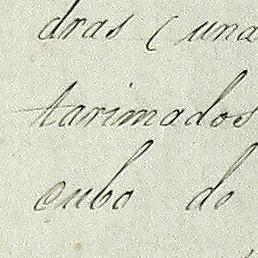 dras (una
tarimados
cubo do